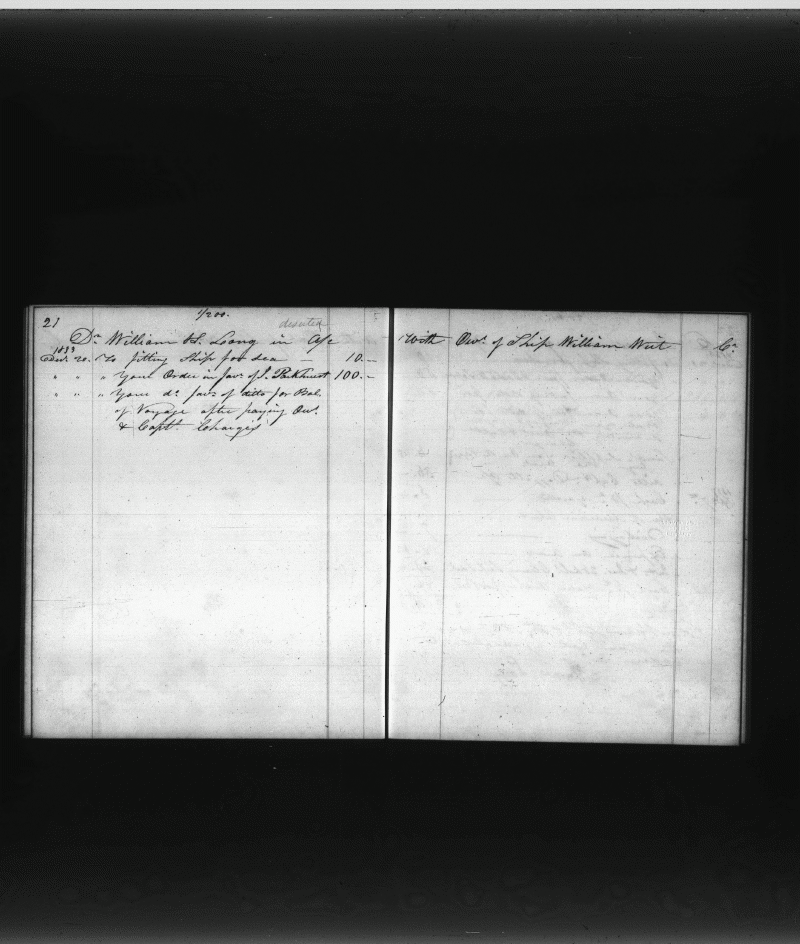 21
1/200.
deserted
Dr. William H. Long in A/c
1833
Decr. 20. To fitting Ship for Sea — 10.—
" " " Your Order in favr. of J. Parkhurst 100.—
" " " Your do. favr. of ditto for Bal.
of Voyage after paying Owr.
& Captn. Charges
With Owr. of Ship William Wirt Cr.